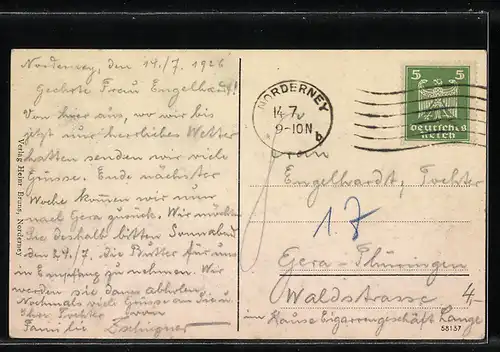 Norderney, den 14./7. 1926
Geehrte Frau Engelhardt!
Von hier aus, wo wir bis
jetzt nur herrliches Wetter
hatten senden wir viele
Grüsse. Ende nächster
Woche kommen wir nun
nach Gera zurück. Wir möchten
Sie deshalb bitten Sonnabend
den 24./7. die Butter für uns
in Empfang zu nehmen. Wir
werden sie dann abholen.
Nochmals viele Grüsse an Sie u.
Ihre Tochter von
Familie
Verlag Heinr. Bruns, Norderney
NORDERNEY
14.7.
9-10N
b
5 5
Deutsches
Reich
Frau
Engelhardt, Tochter
17
Gera-Thüringen
Waldstrasse 4
im Hause Cigarrengeschäft Lange
58137